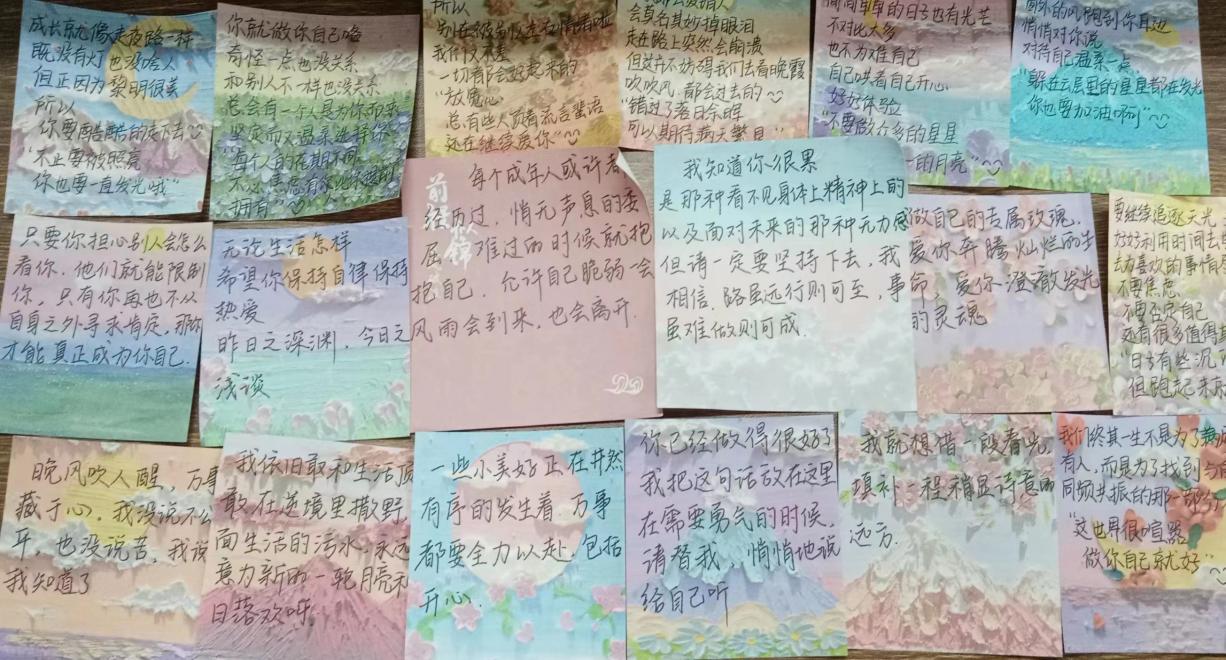 成长就像走夜路一样
既没有灯也没啥人
但正因为黎明很美
所以
"你要酷酷的走下去
"不止要被照亮
你也要一直发光哦"
你就做你自己咯
奇怪一点也没关系
和别人不一样也没关系
总会有一个人是为你而来
坚定而又温柔选择你
"每个人的花期不同
拥有"
所以
我们又不差
一切都会好起来的
"放宽心
总有些人顶着流言蜚语
还在继续爱你"
会莫名其妙掉眼泪
走在路上突然会崩溃
但这并不妨碍我们去看晚霞
吹吹风,都会过去的
"错过了落日余晖
可以期待满天繁星"
简简单单的日子也有光芒
不对比太多
也不为难自己
自己哄着自己开心
好好体验
"不要做众多的星星
一的月亮"
窗外的风跑到你耳边
悄悄对你说
对待自己温柔一点
"躲在云层里的星星都在发光
你也要加油啊"
只要你担心别人会怎么
看你,他们就能限制
你,只有你再也不从
自身之外寻求肯定,那你
才能真正成为你自己.
无论生活怎样
希望你保持自律保持
热爱
昨日之深渊,今日之
浅谈
前
锦
每个成年人或许者
经历过,悄无声息的委
屈,难过的时候就抱
抱自己,允许自己脆弱一会
风雨会到来,也会离开.
我知道你很累
是那种看不见身体上精神上的
以及面对未来的那种无力感
但请一定要坚持下去,我
相信,路虽远行则可至,事
虽难做则可成.
做自己的专属玫瑰,
爱你奔腾灿烂的生
命,爱你澄澈发光
的灵魂
要继续追逐天光
好好利用时间去
去为喜欢的事情
不要焦虑
不要否定自己
还有很多值得
"日子有些沉
但跑起来
晚风吹人醒,万事
藏于心,我没说不公
平,也没说苦,我说
我知道了
我依旧敢和生活顶
敢在逆境里撒野,
面生活的污水,永远
意为新的一轮月亮和
日落欢呼
一些小美好正在井然
有序的发生着,万事
都要全力以赴,包括
开心.
你已经做得很好了
我把这句话放在这里
在需要勇气的时候,
请替我,悄悄地说
给自己听
我就想借一段春光,
填补一程稍显诗意的
远方.
我们终其一生不是为了
有人,而是为了找到与
同频共振的那一部分
"这世界很喧嚣
做你自己就好"